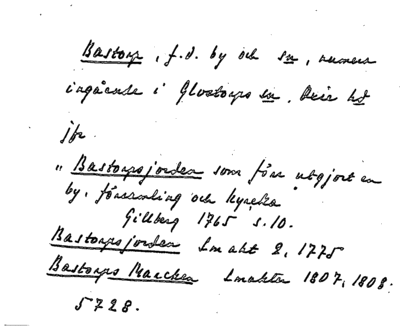 Bastorp, f.d. by och sn, numera
ingående i Glostorps sn, Oxie hd
jfr
"Bastorpsjorden som förr utgjort en
by, församling och kyrcka"
Gillberg 1765 s. 10.
Bastorpsjorden Lmakt 2, 1775
Bastorps Marcken Lmakter 1807, 1808.
5728.